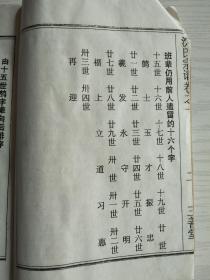 班辈仍用前人遗留的十六个字
十五世 十六世 十七世 十八世 十九世 廿世
鹤 士 玉 才 振 忠
廿一世 廿二世 廿三世 廿四世 廿五世 廿六世
羲 发 永 守 开 明
廿七世 廿八世 廿九世 卅世 卅一世 卅二世
福 上 立 道 习 惠
卅三世 卅四世
再 迎
由十五世鹤字辈向后排序